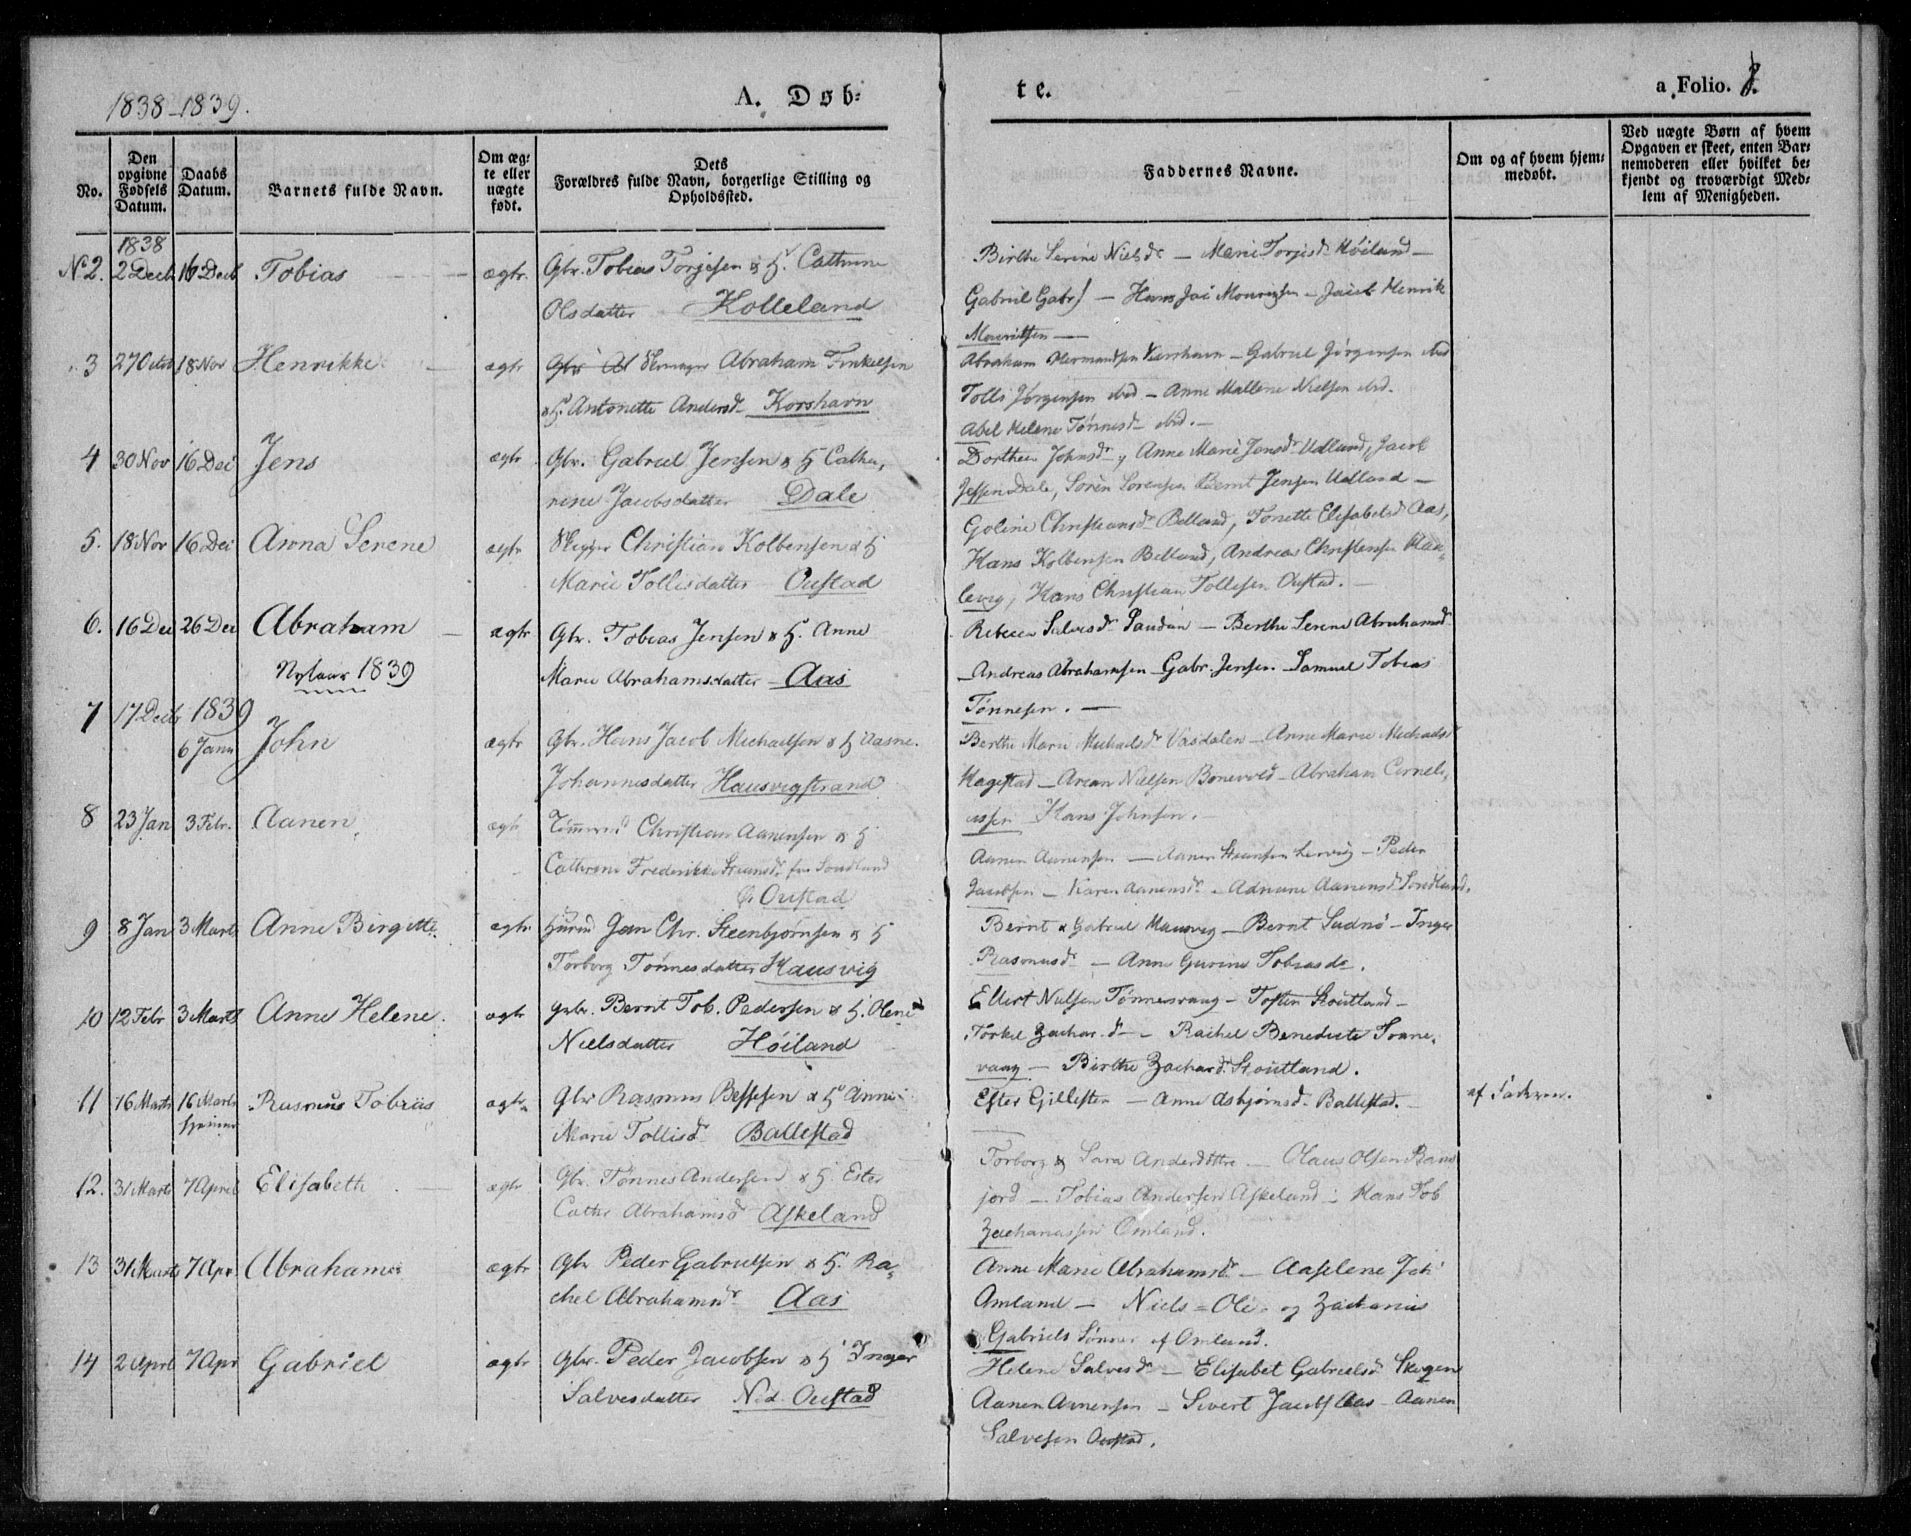 1838-1839.
A. Døb-
te.
a. Folio. 8.
No.
Den opgivne Fødsels Datum.
Daabs Datum.
Barnets fulde Navn.
Om ægte eller uægte født.
Dets Forældres fulde Navn, borgerlige Stilling og Opholdssted.
Faddernes Navne.
Om og af hvem hjemmedøbt.
Ved uægte Børn af hvem Opgaven er skeet, enten Barnemoderen eller hvilket bekjendt og troværdigt Medlem af Menigheden.
1838
N 2. 2 Decb 16 Decb Tobias ægte. Gbr. Tobias Torjesen & H. Cathrine
Olsdatter Kolleland
Birthe Serine Nielsdr — Marie Torjisdr Høiland —
Gabriel Gabr — Hans Jac Mouritzsen — Jacob Henrik
Mouritsen —
3 27 Octob 18 Nov Henrikke ægte Abraham Tinkelsen
& H. Antonette Andersdr Korshavn
Abraham Hermandsen Korshavn — Gabriel Jørgensen ibid
Tollis Jørgensen ibid — Anne Mallene Nielsen ibid.
Abel Helene Tønnesdr ibid. —
4 30 Nov 16 Dec Jens ægte Gbr. Gabriel Jensen & H Cathe,
rine Jacobsdatter Dale
Dorthea Johnsdr, Anne Marie Jensdr Udland, Jacob
Jessen Dale, Søren Sørensen Bernt Jensen Udland —
5. 18 Nov 16 Dec Anna Serene ægte Christian Kolbensen & H
Marie Tollisdatter Oustad
Goline Christiansdr Belland, Tonette Elisabetsdr Aas,
Hans Kolbensen Belland, Andreas Christensen
levig, Hans Christian Tollesen Oustad. —
6. 16 Dec 26 Dec Abraham ægte Gbr. Tobias Jensen & H. Anne
Marie Abrahamsdatter — Aas
Rebecca Salvesdr — Berthe Serene Abrahamsd
Andreas Abrahamsen — Gabr. Jensen — Samuel Tobias
Tønnesen. —
Nytaar 1839
7 17 Decb 1839
6 Janu John ægte Gbr. Hans Jacob Michaelsen & H Aasne.
Johannesdatter Hausvigstrand
Berthe Marie Michaelsdr Vasdalen — Anne Marie Michaelsdr
Hagestad — Areen Nielsen — Abraham Corneli,
ussen Hans Johnsen. —
8 23 Jan 3 Febr. Aanen ægte Christian Aanensen & H
Cathrine Frederikke fra Sandland
Oustad
Aanen Aanensen — Aanen — Peder
Jacobsen — Karen Aanensdr — Adriane Aanensdr Sandland.
9 8 Jan 3 Marts Anne Birgitte ægte Jan Chr. Steenbjørnsen & H
Torborg Tønnesdatter Hausvig
Bernt & Gabriel Hausvig — Bernt — Inger
Rasmusdr — Anne Gurine Tobiasdr.
10 12 Febr 3 Marts Anne Helene. ægte Gbr. Bernt Tob. Pedersen & H. Olene
Nielsdatter Høiland
Ellert Nielsen Tønnesvaag — Tosten Stoutland —
Torkel Zachar.dr — Rachel Benedicte Tonne,
vaag — Birthe Zachardr Stoutland.
11 16 Marts 16 Marts
hjemme Rasmus Tobias ægte Gbr Rasmus Bessesen & H Anne
Marie Tollisdr Ballestad
Ester Gillesten — Anne Asbjørnsd. Ballestad. —
af Faderen.
12. 31 Marts 7 April Elisabeth ægte Gbr. Tønnes Andersen & H. Ester
Cathr Abrahamsd Askeland
Torborg & Sara Andersdøttre — Olaus Olsen
jord — Tobias Andersen Askeland — Hans Tob
Zachariassen Omland.
13 31 Marts 7 Apr Abraham ægte Gbr Peder Gabrielsen & H. Ra,
chel Abrahamsdr Aas
Anne Marie Abrahamsdr — Aaselene
Amland — Niels — Ole — og Zacharius
Gabriels Sønner af Omland.
14 2 April 7 Apr Gabriel ægte Gbr. Peder Jacobsen & H Inger
Salvesdatter Ned. Oustad
Helene Salvesdr — Elisabet Gabrielsd Skogen
Aanen Aanensen — Sivert Jacobs Aas Aanen
Salvesen Oustad.